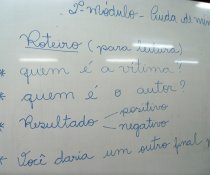 2º Módulo - Ajuda de
Roteiro (para leitura)
* quem é a vítima?
* quem é o autor?
* Resultado positivo
negativo
* Você daria um outro final